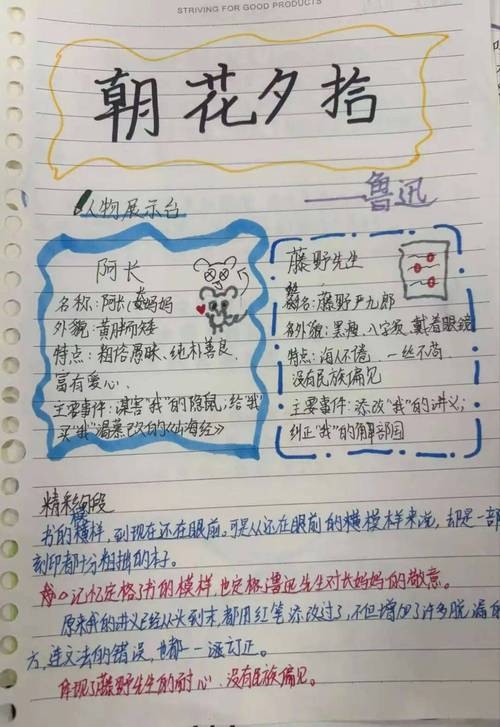 STRIVING FOR GOOD PRODUCTS
朝花夕拾
——鲁迅
人物展示台
阿长
名称:阿长,长妈妈
外貌:黄胖矮
特点:粗俗愚昧、纯朴善良、
富有爱心.
主要事件:谋害“我”的隐鼠;给“我”
买“我”渴慕已久的《山海经》
藤野先生
姓名:藤野严九郎
外貌:黑瘦、八字须、戴着眼镜
特点:诲人不倦、一丝不苟、
没有民族偏见
主要事件:添改“我”的讲义;
纠正“我”的解部图
精彩句段
书的模样,到现在还在眼前。可是从还在眼前的模样来说,却是一部
刻印都十分粗拙的本子。
记忆定格了书的模样,也定格了鲁迅先生对长妈妈的敬意。
原来我的讲义已经从头到末,都用红笔添改过了,不但增加了许多脱漏的
方,连文法的错误,也都一一订正。
体现了藤野先生的耐心、没有民族偏见。